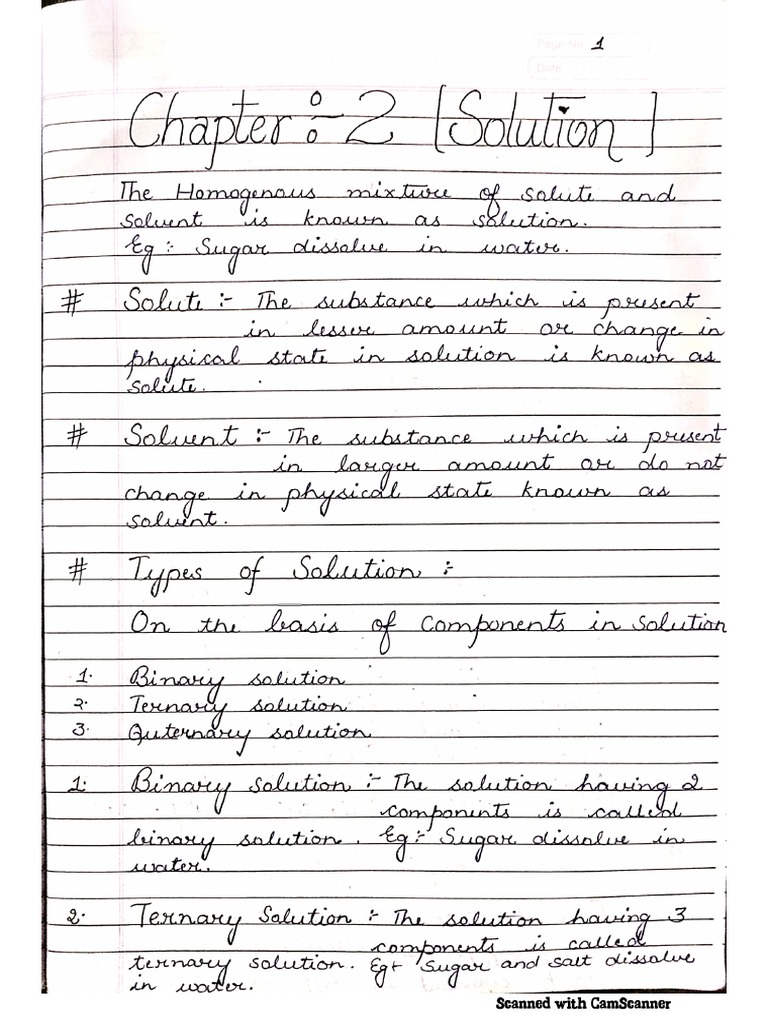 Page No. 1
Date
Chapter :- 2 [Solution]
The Homogenous mixture of solute and
solvent is known as solution.
Eg :- Sugar dissolve in water.
# Solute :- The substance which is present
in lesser amount or change in
physical state in solution is known as
solute.
# Solvent :- The substance which is present
in larger amount or do not
change in physical state known as
solvent.
# Types of Solution :-
On the basis of components in solution
1. Binary solution
2. Ternary solution
3. Quternary solution
1. Binary solution :- The solution having 2
components is called
binary solution. Eg :- Sugar dissolve in
water.
2. Ternary Solution :- The solution having 3
components is called
ternary solution. Eg :- Sugar and salt dissolve
in water.
Scanned with CamScanner